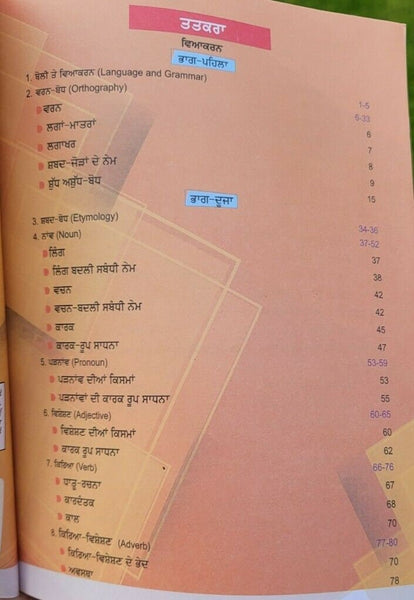 ਤਤਕਰਾ
ਵਿਆਕਰਨ
ਭਾਗ-ਪਹਿਲਾ
1. ਬੋਲੀ ਤੇ ਵਿਆਕਰਨ (Language and Grammar) 1-5
2. ਵਰਨ-ਬੋਧ (Orthography) 6-33
ਵਰਨ 6
ਲਗਾਂ-ਮਾਤਰਾਂ 7
ਲਗਾਖਰ 8
ਸ਼ਬਦ-ਜੋੜਾਂ ਦੇ ਨੇਮ 9
ਸ਼ੁੱਧ ਅਸ਼ੁੱਧ-ਬੋਧ 15
ਭਾਗ-ਦੂਜਾ
3. ਸ਼ਬਦ-ਬੋਧ (Etymology) 34-36
4. ਨਾਂਵ (Noun) 37-52
ਲਿੰਗ 37
ਲਿੰਗ ਬਦਲੀ ਸਬੰਧੀ ਨੇਮ 38
ਵਚਨ 42
ਵਚਨ-ਬਦਲੀ ਸਬੰਧੀ ਨੇਮ 42
ਕਾਰਕ 45
ਕਾਰਕ-ਰੂਪ ਸਾਧਨਾ 47
5. ਪੜਨਾਂਵ (Pronoun) 53-59
ਪੜਨਾਂਵ ਦੀਆਂ ਕਿਸਮਾਂ 53
ਪੜਨਾਂਵਾਂ ਦੀ ਕਾਰਕ ਰੂਪ ਸਾਧਨਾ 55
6. ਵਿਸ਼ੇਸ਼ਣ (Adjective) 60-65
ਵਿਸ਼ੇਸ਼ਣ ਦੀਆਂ ਕਿਸਮਾਂ 60
ਕਾਰਕ ਰੂਪ ਸਾਧਨਾ 62
7. ਕਿਰਿਆ (Verb) 66-76
ਧਾਤੂ-ਰਚਨਾ 67
ਕਾਰਦੰਤਕ 68
ਕਾਲ 70
8. ਕਿਰਿਆ-ਵਿਸ਼ੇਸ਼ਣ (Adverb) 77-80
ਕਿਰਿਆ-ਵਿਸ਼ੇਸ਼ਣ ਦੇ ਭੇਦ 70
ਅਵਸਥਾ 78